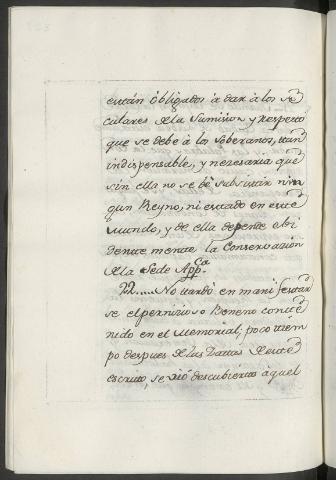 están óbligados à dar à los se
culares de la Sumision y respecto
que se debe à los Soberanos, tan
indispensable, y necesaria que
sin ella no se bé subsistir nin
gun Reyno, ni estado en este
mundo, y de ella depende evi
dentemente la Conservacion
de la Sede App.ca
22..... No tardó en manifestar
se el pernicioso Beneno conte
nido en el Memorial; poco tiem
po despues de las Dattas de este
escrito, se vió descubierto àquel